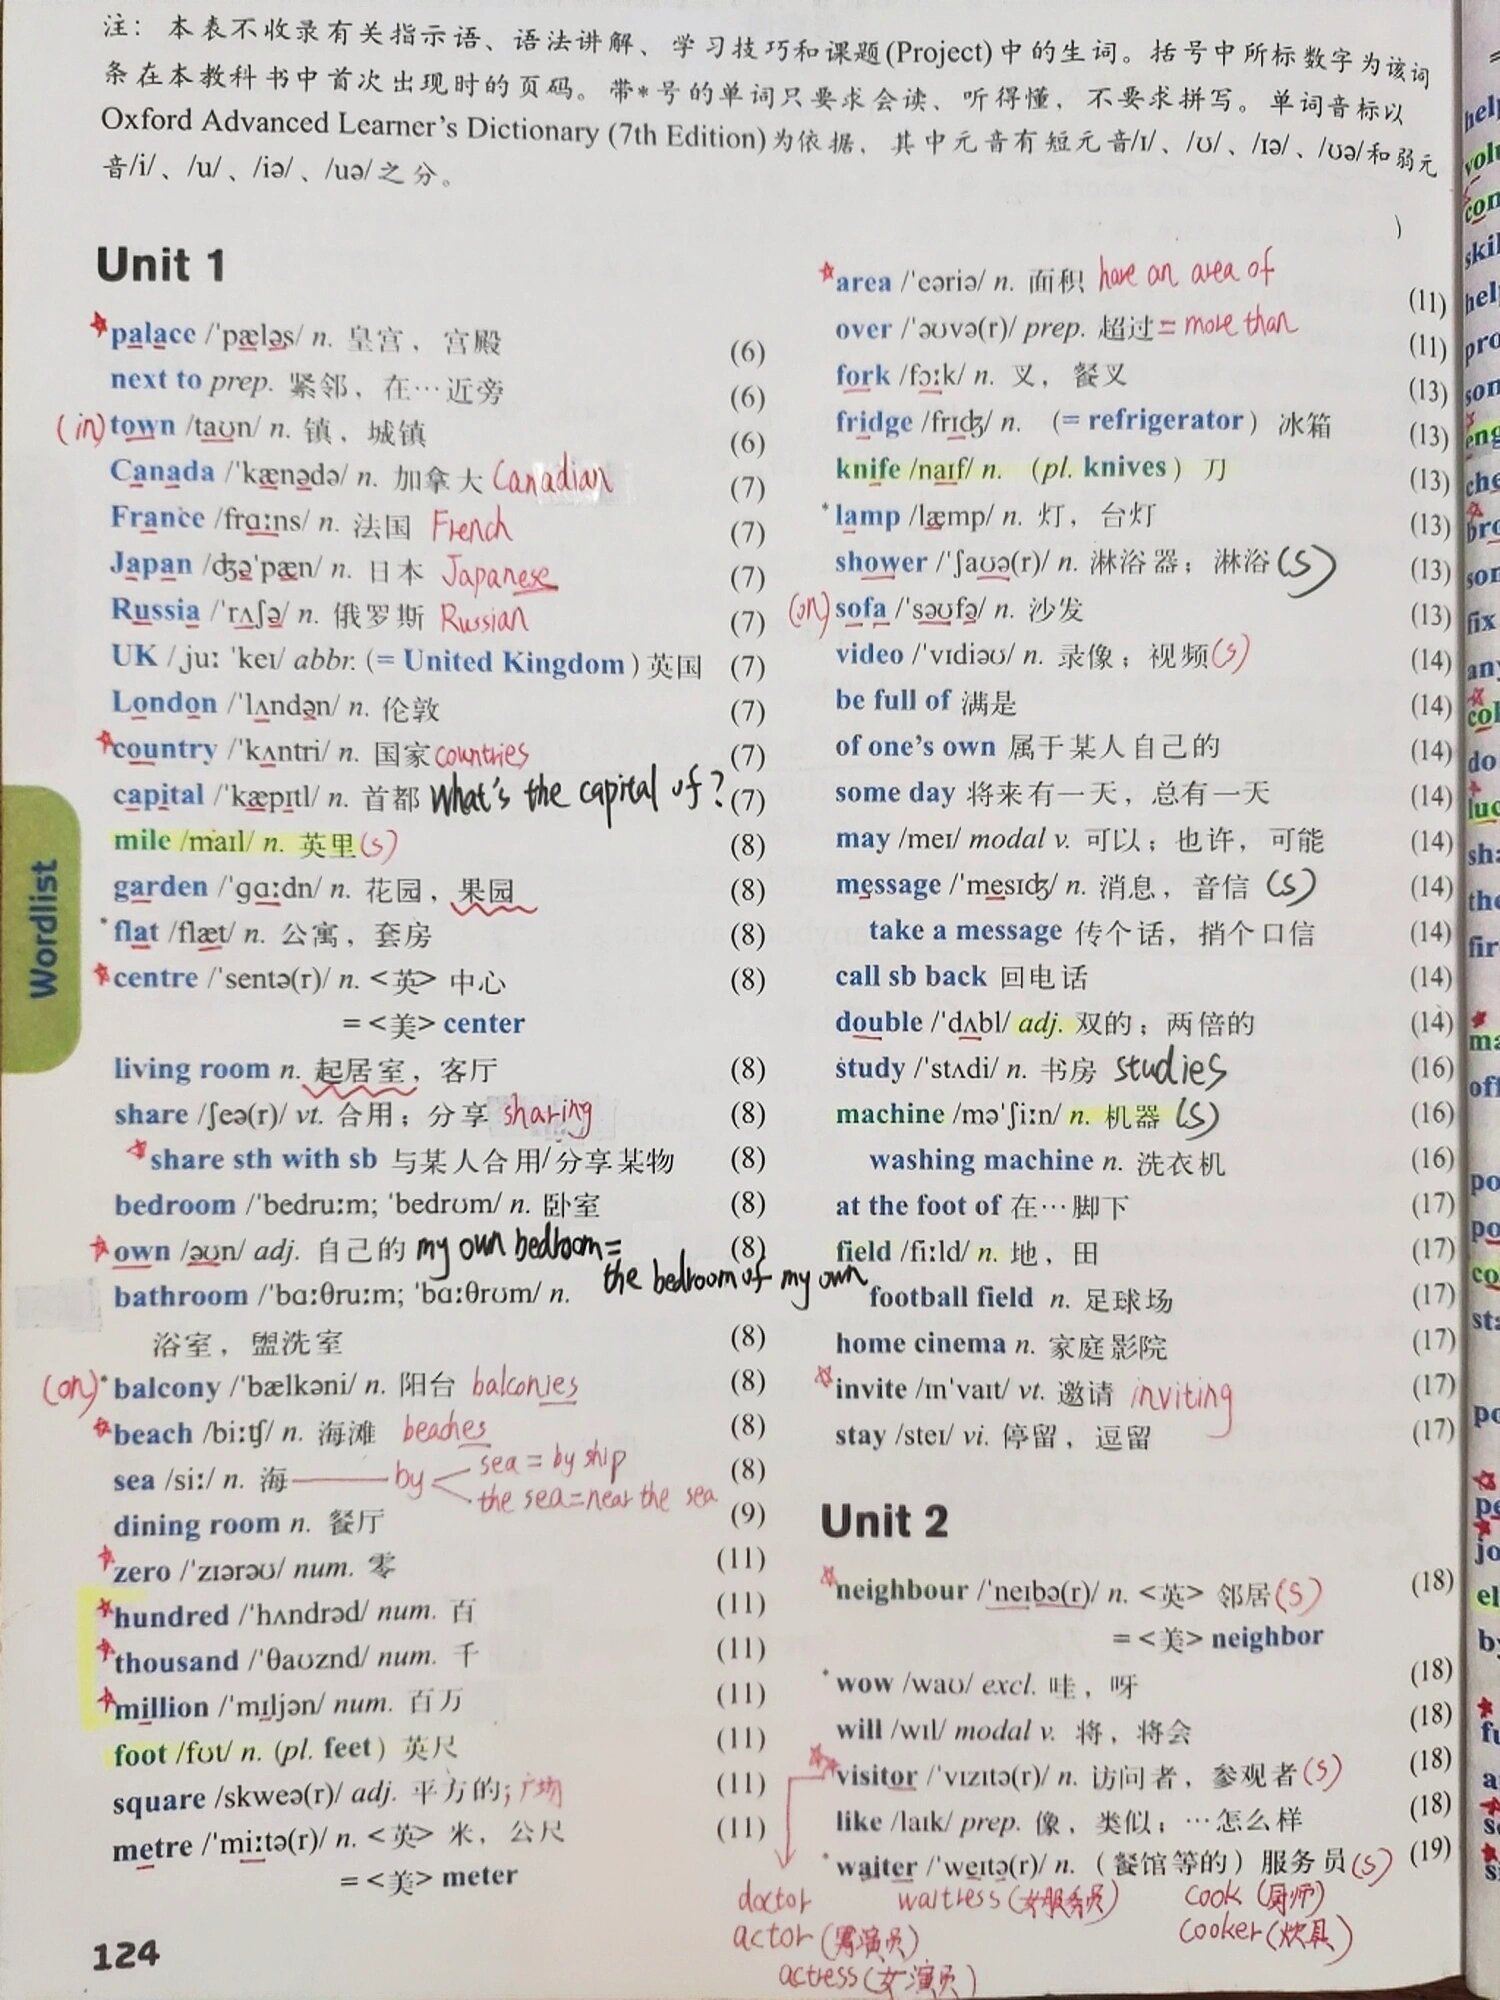 注：本表不收录有关指示语、语法讲解、学习技巧和课题(Project)中的生词。括号中所标数字为该词
条在本教科书中首次出现时的页码。带*号的单词只要求会读、听得懂，不要求拼写。单词音标以
Oxford Advanced Learner's Dictionary (7th Edition)为依据，其中元音有短元音/ɪ/、/ʊ/、/ɪə/、/ʊə/和弱元
音/i/、/u/、/iə/、/uə/之分。
Unit 1
palace /ˈpæləs/ n. 皇宫，宫殿 (6)
next to prep. 紧邻，在…近旁 (6)
(in) town /taʊn/ n. 镇，城镇 (6)
Canada /ˈkænədə/ n. 加拿大 Canadian (7)
France /frɑːns/ n. 法国 French (7)
Japan /dʒəˈpæn/ n. 日本 Japanese (7)
Russia /ˈrʌʃə/ n. 俄罗斯 Russian (7)
UK /ˌjuː ˈkeɪ/ abbr. (= United Kingdom) 英国 (7)
London /ˈlʌndən/ n. 伦敦 (7)
country /ˈkʌntri/ n. 国家 countries (7)
capital /ˈkæpɪtl/ n. 首都 What's the capital of? (7)
mile /maɪl/ n. 英里(s) (8)
garden /ˈɡɑːdn/ n. 花园，果园 (8)
*flat /flæt/ n. 公寓，套房 (8)
centre /ˈsentə(r)/ n. <英> 中心 (8)
= <美> center
living room n. 起居室，客厅 (8)
share /ʃeə(r)/ vt. 合用；分享 sharing (8)
share sth with sb 与某人合用/分享某物 (8)
bedroom /ˈbedruːm; ˈbedrʊm/ n. 卧室 (8)
own /əʊn/ adj. 自己的 my own bedroom = (8)
the bedroom of my own
bathroom /ˈbɑːθruːm; ˈbɑːθrʊm/ n.
浴室，盥洗室 (8)
(on) *balcony /ˈbælkəni/ n. 阳台 balconies (8)
beach /biːtʃ/ n. 海滩 beaches (8)
sea = by ship
sea /siː/ n. 海 by (8)
the sea = near the sea
dining room n. 餐厅 (9)
zero /ˈzɪərəʊ/ num. 零 (11)
hundred /ˈhʌndrəd/ num. 百 (11)
thousand /ˈθaʊznd/ num. 千 (11)
million /ˈmɪljən/ num. 百万 (11)
foot /fʊt/ n. (pl. feet) 英尺 (11)
square /skweə(r)/ adj. 平方的；广场 (11)
metre /ˈmiːtə(r)/ n. <英> 米，公尺 (11)
= <美> meter
area /ˈeəriə/ n. 面积 have an area of (11)
over /ˈəʊvə(r)/ prep. 超过 = more than (11)
fork /fɔːk/ n. 叉，餐叉 (13)
fridge /frɪdʒ/ n. (= refrigerator) 冰箱 (13)
knife /naɪf/ n. (pl. knives) 刀 (13)
*lamp /læmp/ n. 灯，台灯 (13)
shower /ˈʃaʊə(r)/ n. 淋浴器；淋浴 (s) (13)
(on) sofa /ˈsəʊfə/ n. 沙发 (13)
video /ˈvɪdiəʊ/ n. 录像；视频(s) (14)
be full of 满是 (14)
of one's own 属于某人自己的 (14)
some day 将来有一天，总有一天 (14)
may /meɪ/ modal v. 可以；也许，可能 (14)
message /ˈmesɪdʒ/ n. 消息，音信 (s) (14)
take a message 传个话，捎个口信 (14)
call sb back 回电话 (14)
double /ˈdʌbl/ adj. 双的；两倍的 (14)
study /ˈstʌdi/ n. 书房 studies (16)
machine /məˈʃiːn/ n. 机器 (s) (16)
washing machine n. 洗衣机 (16)
at the foot of 在…脚下 (17)
field /fiːld/ n. 地，田 (17)
football field n. 足球场 (17)
home cinema n. 家庭影院 (17)
invite /ɪnˈvaɪt/ vt. 邀请 inviting (17)
stay /steɪ/ vi. 停留，逗留 (17)
Unit 2
neighbour /ˈneɪbə(r)/ n. <英> 邻居(s) (18)
= <美> neighbor
*wow /waʊ/ excl. 哇，呀 (18)
will /wɪl/ modal v. 将，将会 (18)
*visitor /ˈvɪzɪtə(r)/ n. 访问者，参观者(s) (18)
like /laɪk/ prep. 像，类似；…怎么样 (18)
*waiter /ˈweɪtə(r)/ n. (餐馆等的) 服务员(s) (19)
doctor waitress(女服务员) cook (厨师)
actor (男演员) cooker(炊具)
actress(女演员)
Wordlist
124